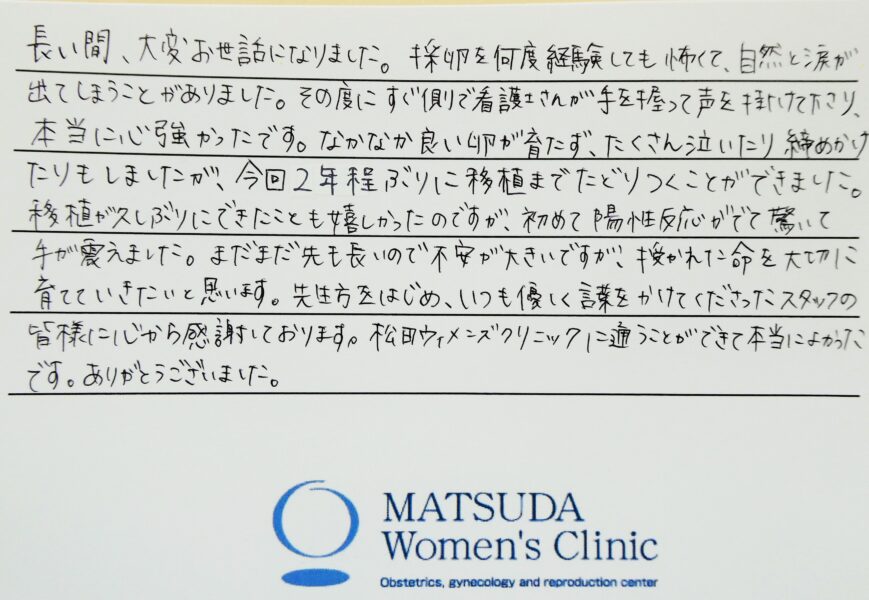 長い間、大変お世話になりました。採卵を何度経験しても怖くて、自然と涙が
出てしまうことがありました。その度にすぐ側で看護士さんが手を握って声を掛けて下さり、
本当に心強かったです。なかなか良い卵が育たず、たくさん泣いたり締めかけ
たりもしましたが、今回2年程ぶりに移植までたどりつくことができました。
移植が久しぶりにできたことも嬉しかったのですが、初めて陽性反応がでて驚いて
手が震えました。まだまだ先も長いので不安が大きいですが、授かれた命を大切に
育てていきたいと思います。先生方をはじめ、いつも優しく言葉をかけてくださったスタッフの
皆様に心から感謝しております。松田ウィメンズクリニックに通うことができて本当によかった
です。ありがとうございました。
MATSUDA
Women's Clinic
Obstetrics, gynecology and reproduction center